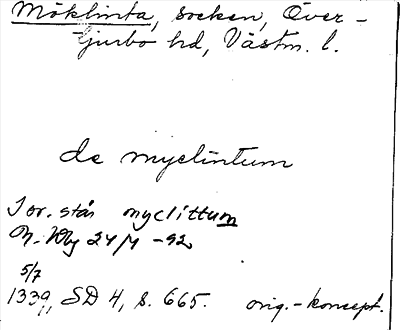 Möklinta, socken, Över-
Tjurbo hd, Västm. l.
de myclintum
I or. står myclittum
24/4 -92
5/7
1339, SD 4, s. 665. orig.-koncept.